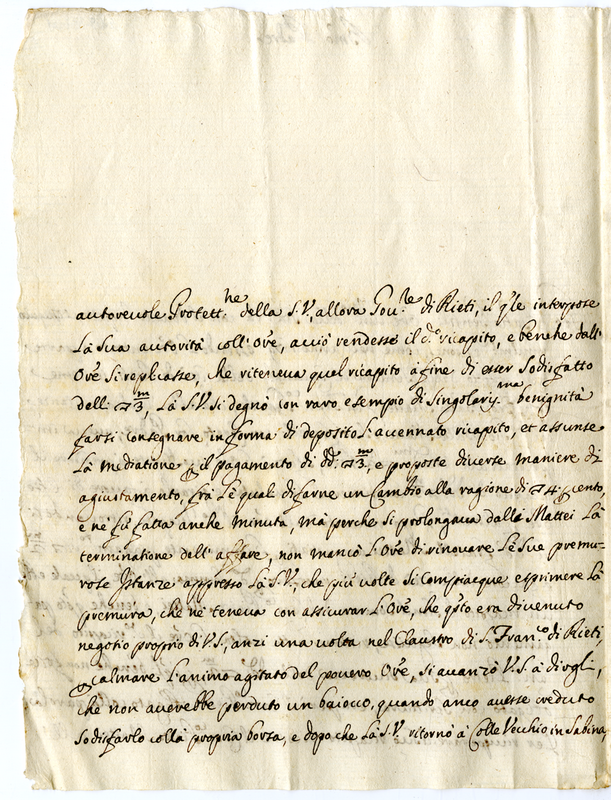 autorevole Protett.ne della S.V., allora Gov.re di Rieti, il q'le interpose
La Sua autorità coll' Ore, acciò rendesse il d.o ricapito, e benche dall'
Ore si replicasse, che riteneva quel ricapito à fine di esser Sodisfatto
delli 3m, La S.V. si degnò con raro esempio di Singolariss.ma benignità
farsi consegnare in forma di deposito l'accennato ricapito, et assunse
La mediatione p il pagamento di dd. 3m, e propose diverse maniere di
agiustamento, frà Le quali di farne un Cambio alla ragione di 4 p cento,
e ne fù fatta anche minuta, mà perche si prolongava dalla Mattei La
terminatione dell' affare, non mancò L'Ore di rinovare Le Sue premu-
rose Istanze appresso La S.V., che più volte si compiacque esprimere La
premura, che ne teneva con assicurar L'Ore, che q'sto era divenuto
negotio proprio di V.S., anzi una volta nel Claustro di S. Fran.co di Rieti
p calmare L'animo agitato del povero Ore, si avanzò V.S. à dirgli,
che non averebbe perduto un baiocco, quando anco avesse creduto
Sodisfarlo colla propria borza, e dopo che La S.V. ritornò à Colle Vecchio in Sabina,